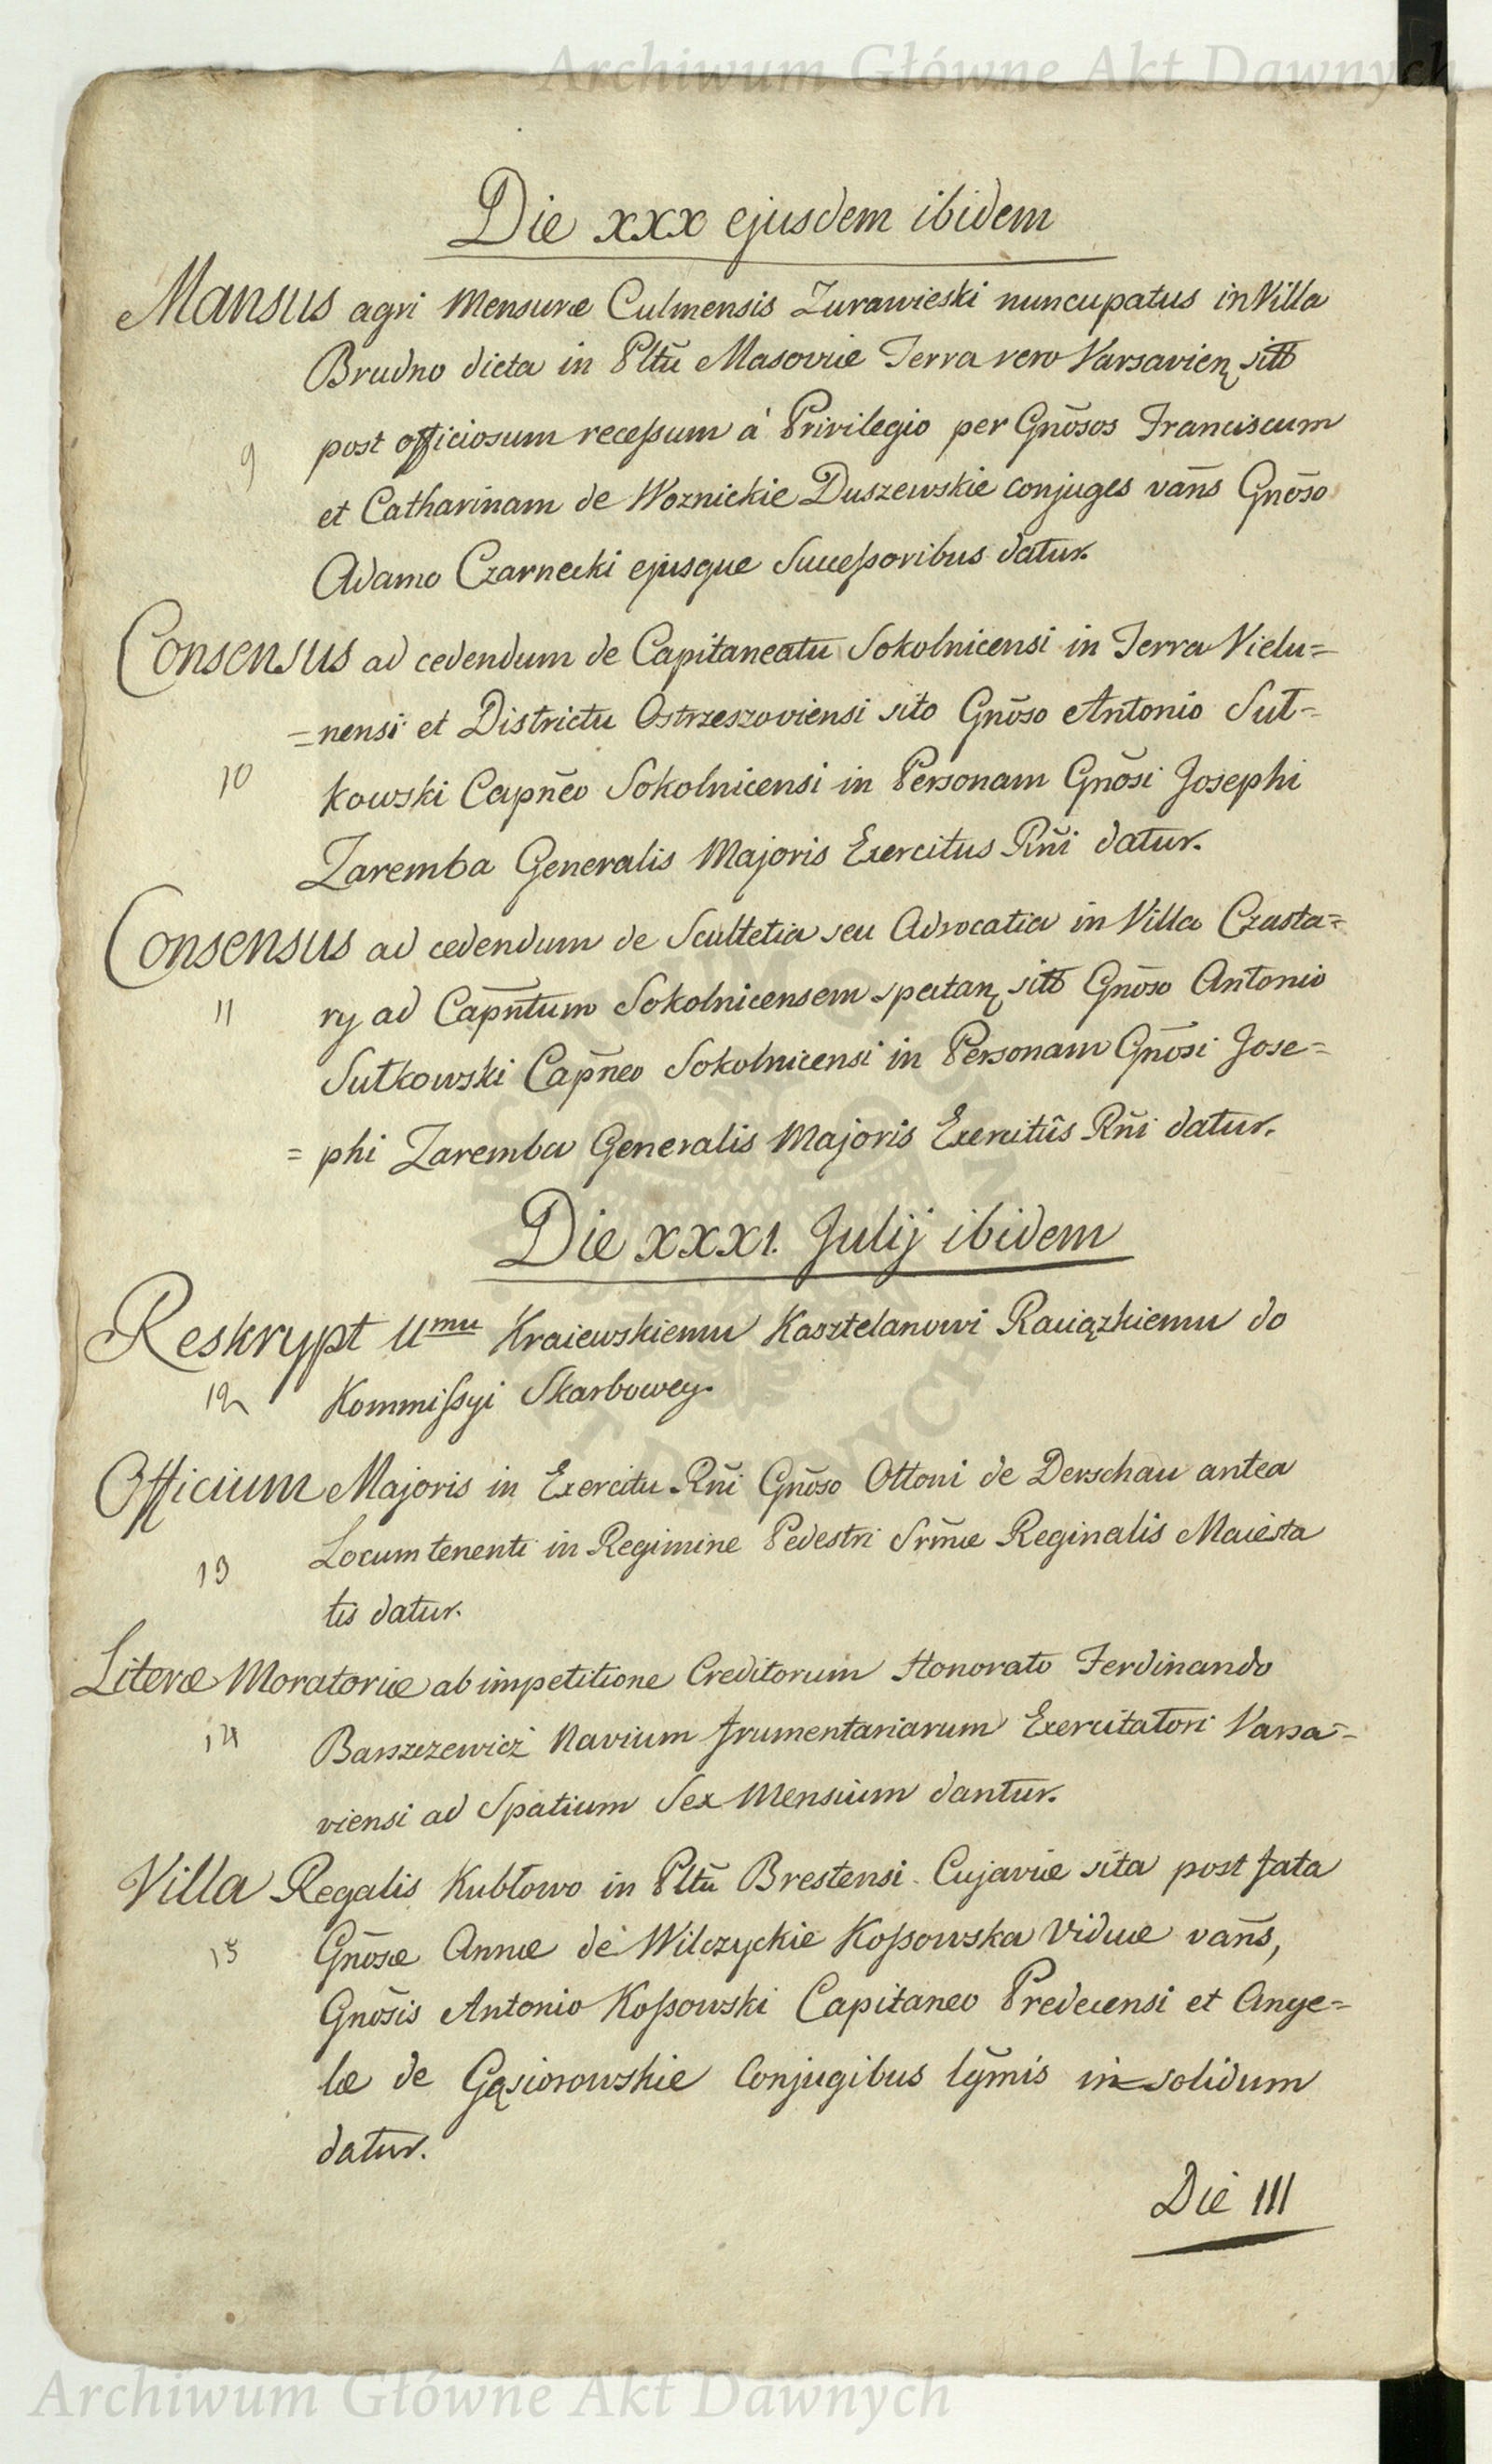 Archiwum Główne Akt Dawnych
Die xxx ejusdem ibidem
Mansus agri Mensuræ Culmensis Zurawieski nuncupatus in Villa
Brudno dicta in Pltũ Masoviæ Terra vero Varsavien sitt
9 post officiosum recessum à Privilegio per Gnõsos Franciscum
et Catharinam de Woznickie Duszewskie conjuges vañs Gnõso
Adamo Czarnecki ejusque Successoribus datur.
Consensus ad cedendum de Capitaneatu Sokolnicensi in Terra Vielu=
=nensi et Districtu Ostrzeszoviensi sito Gnõso Antonio Sut=
10 kowski Capñeo Sokolnicensi in Personam Gnõsi Josephi
Zaremba Generalis Majoris Exercitus Rñi datur.
Consensus ad cedendum de Scultetia seu Advocatia in Villa Czasta=
11 ry ad Capñtum Sokolnicensem spectan sitt Gnõso Antonio
Sutkowski Capñeo Sokolnicensi in Personam Gnõsi Jose=
=phi Zaremba Generalis Majoris Exercitûs Rñi datur.
Die xxx1. Julij ibidem
Reskrypt Umu Kraiewskiemu Kasztelanowi Raciązkiemu do
12 Kommissyi Skarbowey.
Officium Majoris in Exercitu Rñi Gnõso Ottoni de Derschau antea
13 Locumtenenti in Regimine Pedestri Srm̃æ Reginalis Maiesta
tis datur.
Literæ Moratoriæ ab impetitione Creditorum Honorato Ferdinando
14 Barszczewicz Navium frumentariarum Exercitatori Varsa=
viensi ad Spatium Sex Mensium dantur.
Villa Regalis Kubłowo in Pltũ Brestensi Cujaviæ sita post fata
15 Gnõsæ Annæ de Wilczyckie Kossowska Viduæ vañs,
Gnõsis Antonio Kossowski Capitaneo Predecensi et Ange=
læ de Gąsiorowskie Conjugibus lgm̃is in solidum
datur.
Die III
Archiwum Główne Akt Dawnych